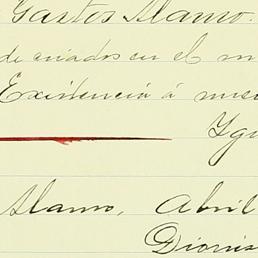 Gastos Alamo.
de criados en el m
Existencia á mis
Ygu
Alamo, Abril
Dionis